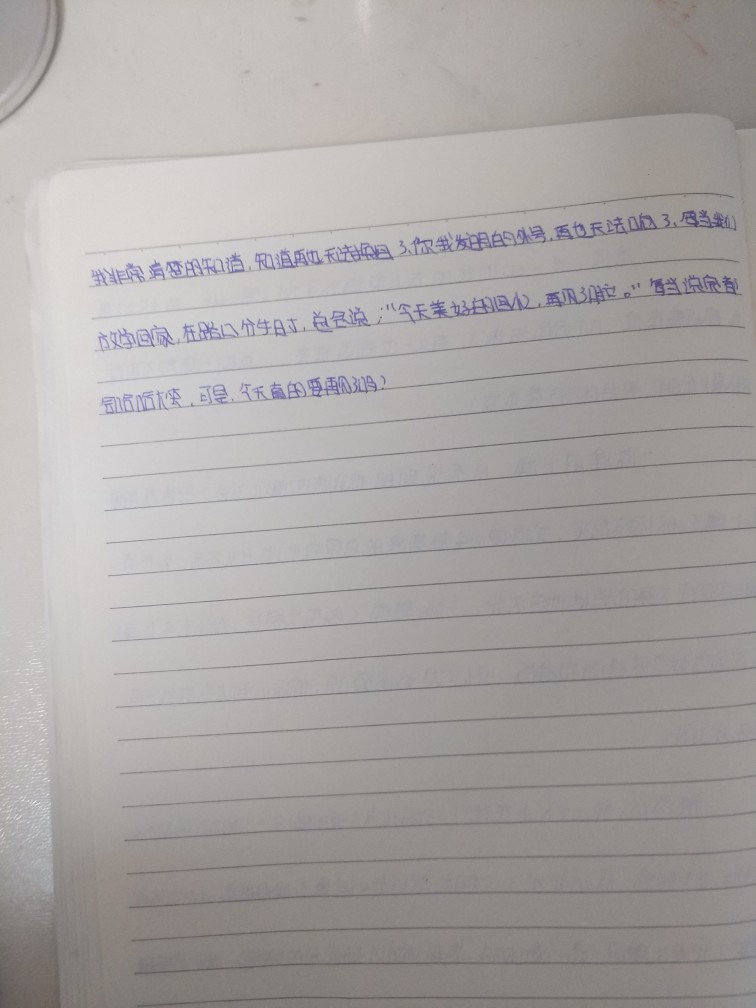 我非常清楚的知道,知道再也无法挽回了,你我发明的外号,再也无法叫了,每当我们
放学回家,在路口分手时,总会说:“今天美好的回忆,再见了啦。”每当说完都
会哈哈大笑,可是,今天真的要再见了吗?